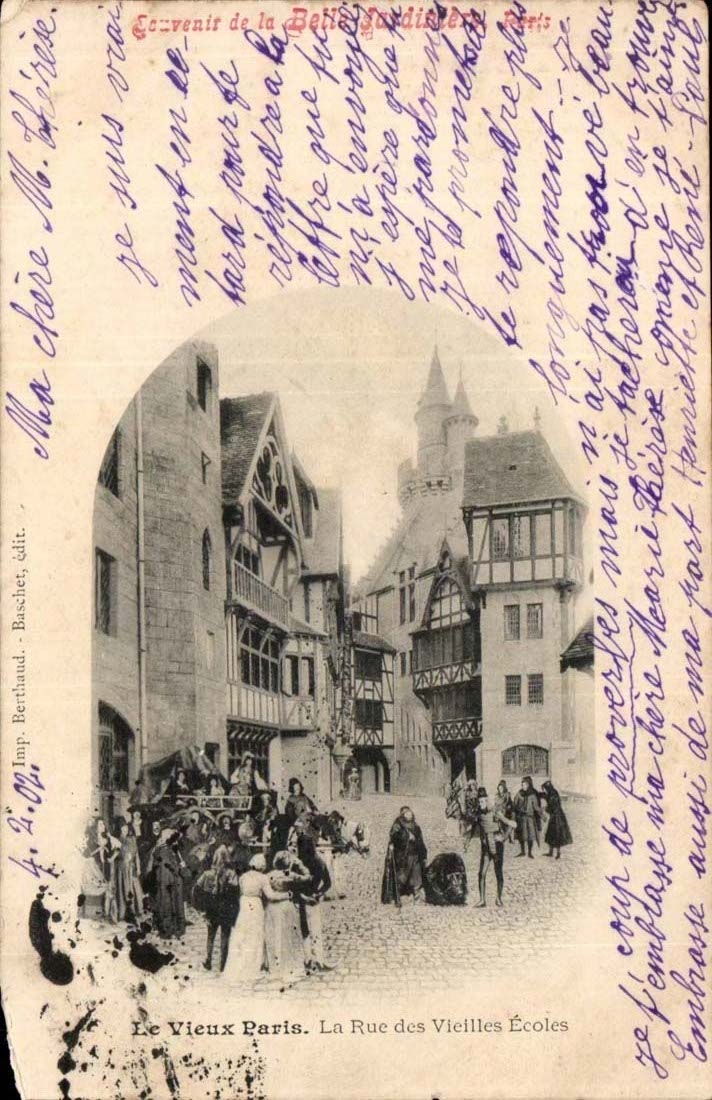 Souvenir de la Belle Jardinière, Paris
Ma chère M. Thérèse.
je suis vrai
ment en re-
tard pour te
répondre à la
lettre que tu
m'a envoyé
j'espère que tu
me pardonne
je te promets de
te repondre plus
longuement - Je
n'ai pas trouvé beau
coup de proverbes mais je tacherai d'en trouver
je t'embrasse ma chère Marie Thérèse comme je t'aime
Embrasse aussi de ma part Henriette et René - Paul
Imp. Berthaud. - Baschet, édit.
4.2.02.
Le Vieux Paris. La Rue des Vieilles Écoles